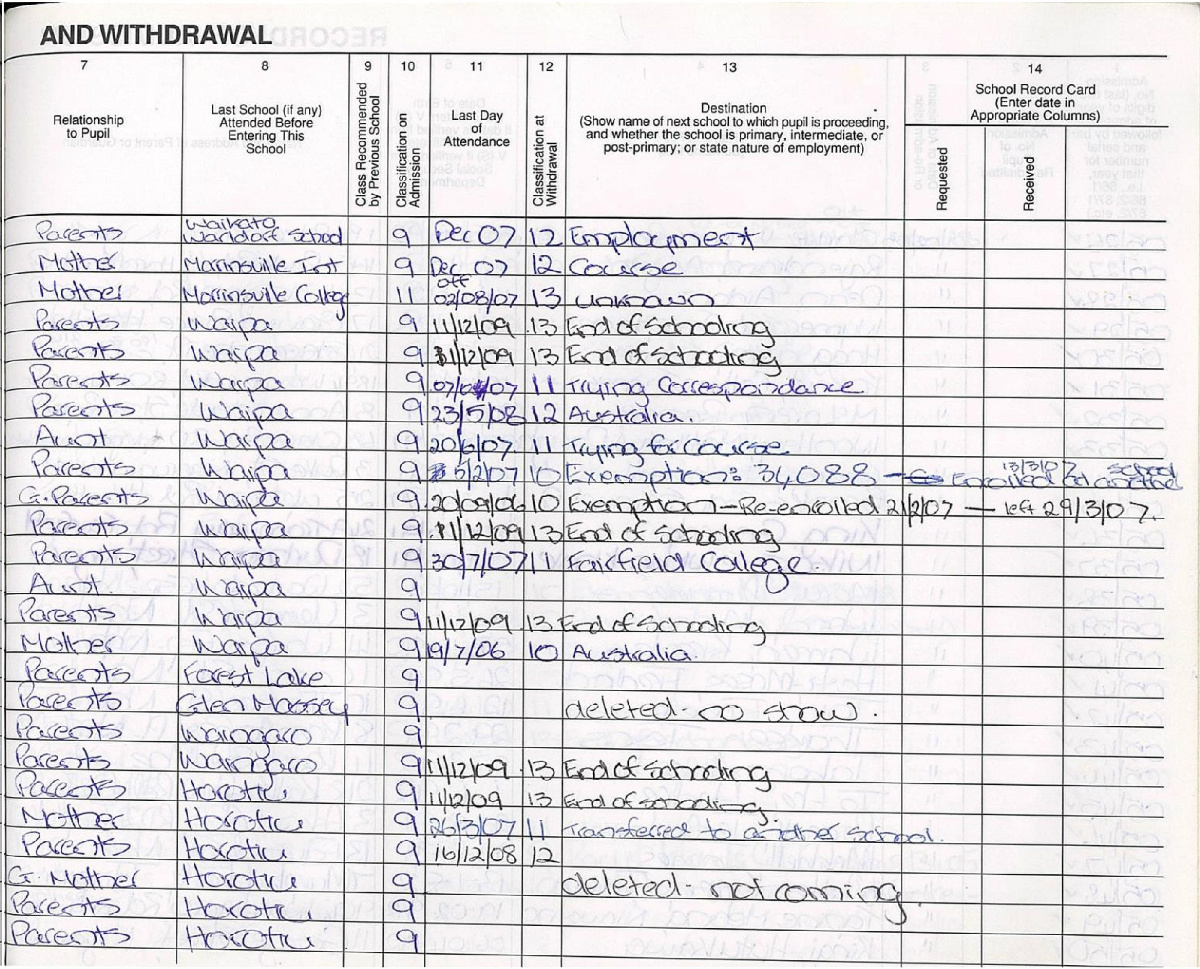 AND WITHDRAWAL
7 8 9 10 11 12 13 14
Relationship to Pupil
Last School (if any) Attended Before Entering This School
Class Recommended by Previous School
Classification on Admission
Last Day of Attendance
Classification at Withdrawal
Destination
(Show name of next school to which pupil is proceeding, and whether the school is primary, intermediate, or post-primary; or state nature of employment)
School Record Card
(Enter date in Appropriate Columns)
Requested
Received
Parents Waikato Waldorf School 9 Dec 07 12 Employment
Mother Morrinsville Int 9 Dec 07 12 Course
Mother Morrinsville College 11 off 02/08/07 13 unknown
Parents Waipa 9 11/12/09 13 End of Schooling
Parents Waipa 9 11/12/09 13 End of Schooling
Parents Waipa 9 11 Trying Correspondance
Parents Waipa 9 23/5/08 12 Australia.
Aunt Waipa 9 20/6/07 11 Trying for Course
Parents Waipa 9 5/2/07 10 Exemption: 34088 - Enrolled at another school 13/3/07
G.Parents Waipa 9 20/09/06 10 Exemption - Re-enrolled 21/2/07 — left 29/3/07.
Parents Waipa 9 11/12/09 13 End of Schooling
Parents Waipa 9 30/7/07 11 Fairfield College.
Aunt. Waipa 9
Parents Waipa 9 11/12/09 13 End of Schooling
Mother Waipa 9 19/7/06 10 Australia.
Parents Forest Lake 9
Parents Glen Massey 9 deleted - no show.
Parents Waingaro 9
Parents Waingaro 9 11/12/09 13 End of Schooling
Parents Horotiu 9 11/12/09 13 End of Schooling
Mother Horotiu 9 26/3/07 11 Transferred to another school.
Parents Horotiu 9 16/12/08 12
G. Mother Horotiu 9 deleted - not coming.
Parents Horotiu 9
Parents Horotiu 9